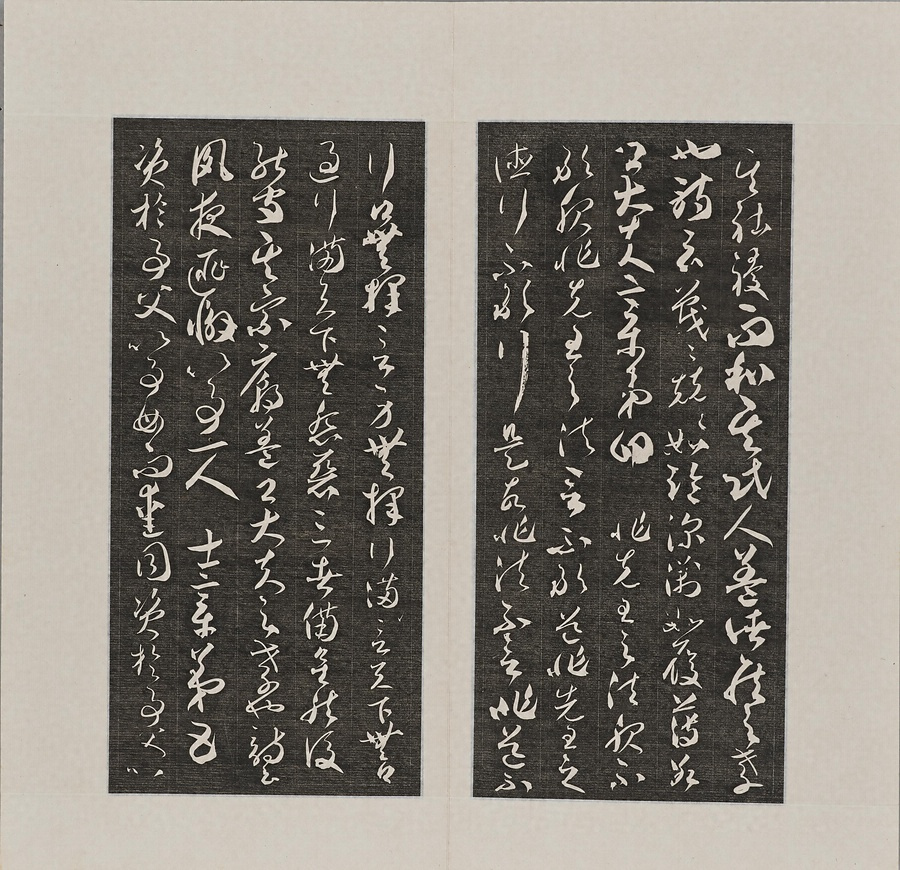 其社稷而和其民人蓋諸侯之孝
也詩云戰〻兢〻如臨深淵如履薄冰
卿大夫章第四　非先王之法服不
敢服非先王之法言不敢道非先王之
德行不敢行是故非法不言非道不
行口無擇言身無擇行滿言天下無口
過行滿天下無怨惡三者備矣然後
能守其宗廟蓋卿大夫之孝也詩云
夙夜匪懈以事一人　士章第五
資於事父以事母而愛同資於事父以